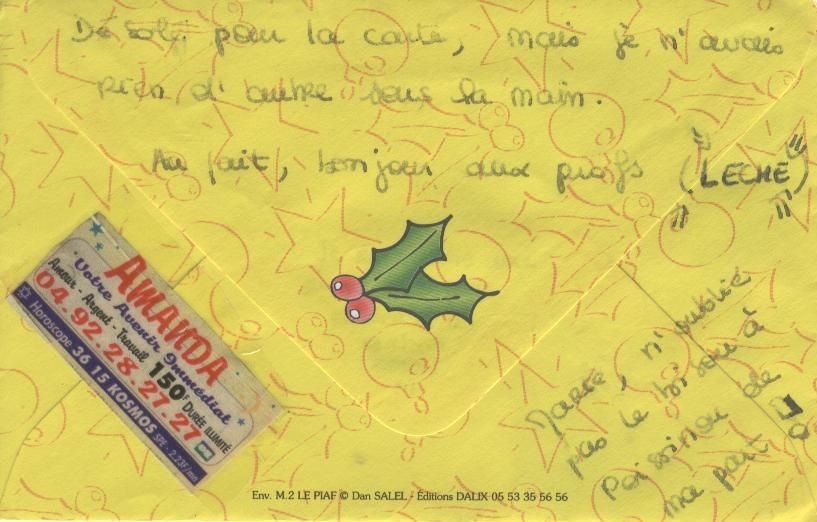 Désolé pour la carte, mais je n'avais
rien d'autre sous la main.
Au fait, bonjour aux profs (LECHE)
AMANDA
Votre Avenir Immédiat
Amour - Argent - Travail
150F DURÉE ILLIMITÉ
04.92.28.27.27
Horoscope 36 15 KOSMOS SPE - 2.23F/mn
n'oublie
pas le bisou à
Poissinou de
ma part
Env. M.2 LE PIAF © Dan SALEL - Éditions DALIX 05 53 35 56 56